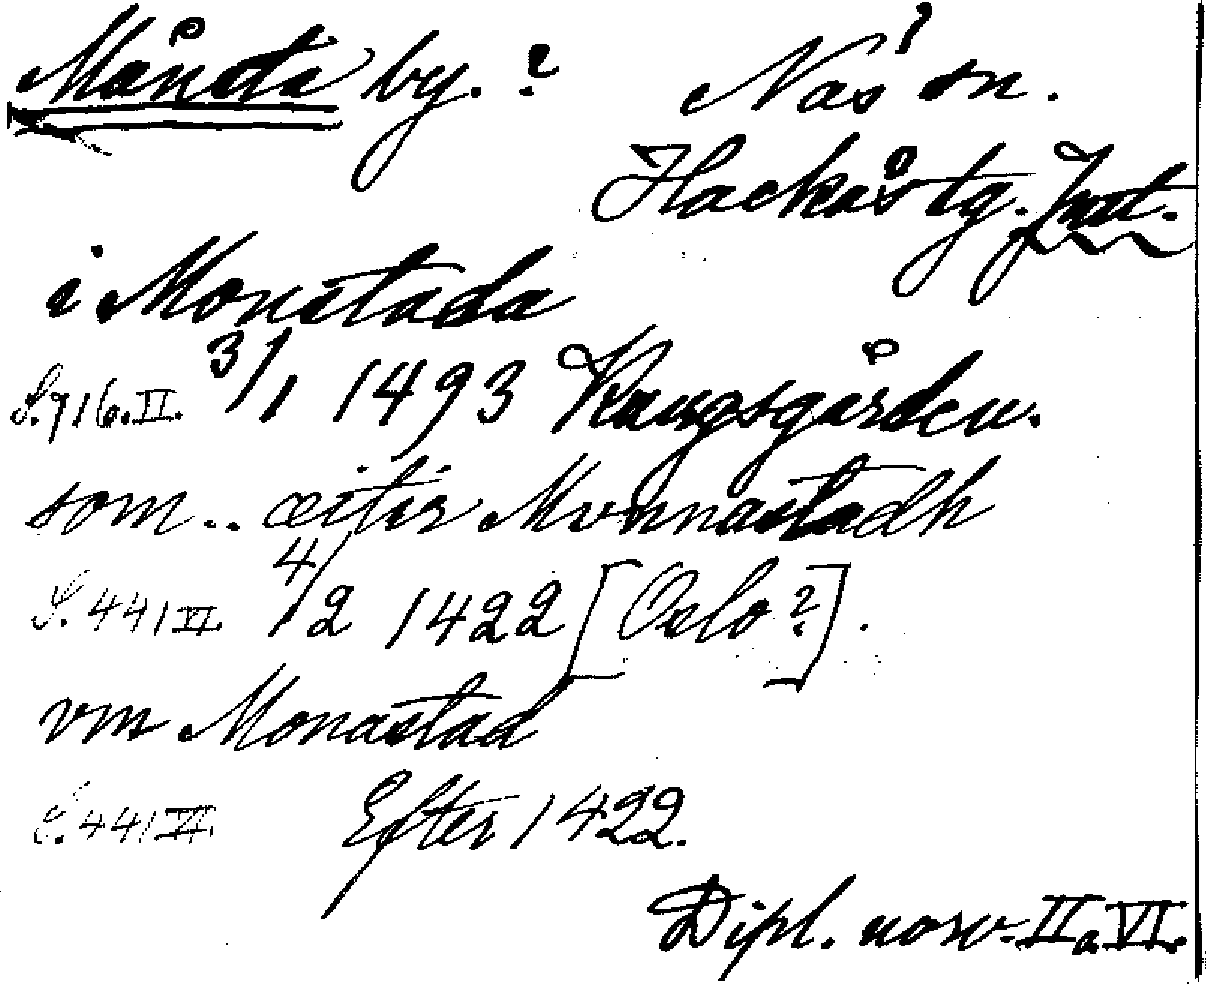 Månsta by. ? Näs sn.
Hackås tg. Jmt.
i Monstada
S. 716. II. 3/1 1493 Kungsgården.
som .. œitir Mvnnastadh
S. 441 VI. 4/2 1422 [Oslo?].
vm Monastad
S. 441 VI. Efter 1422.
Dipl. norv. II o. VI.